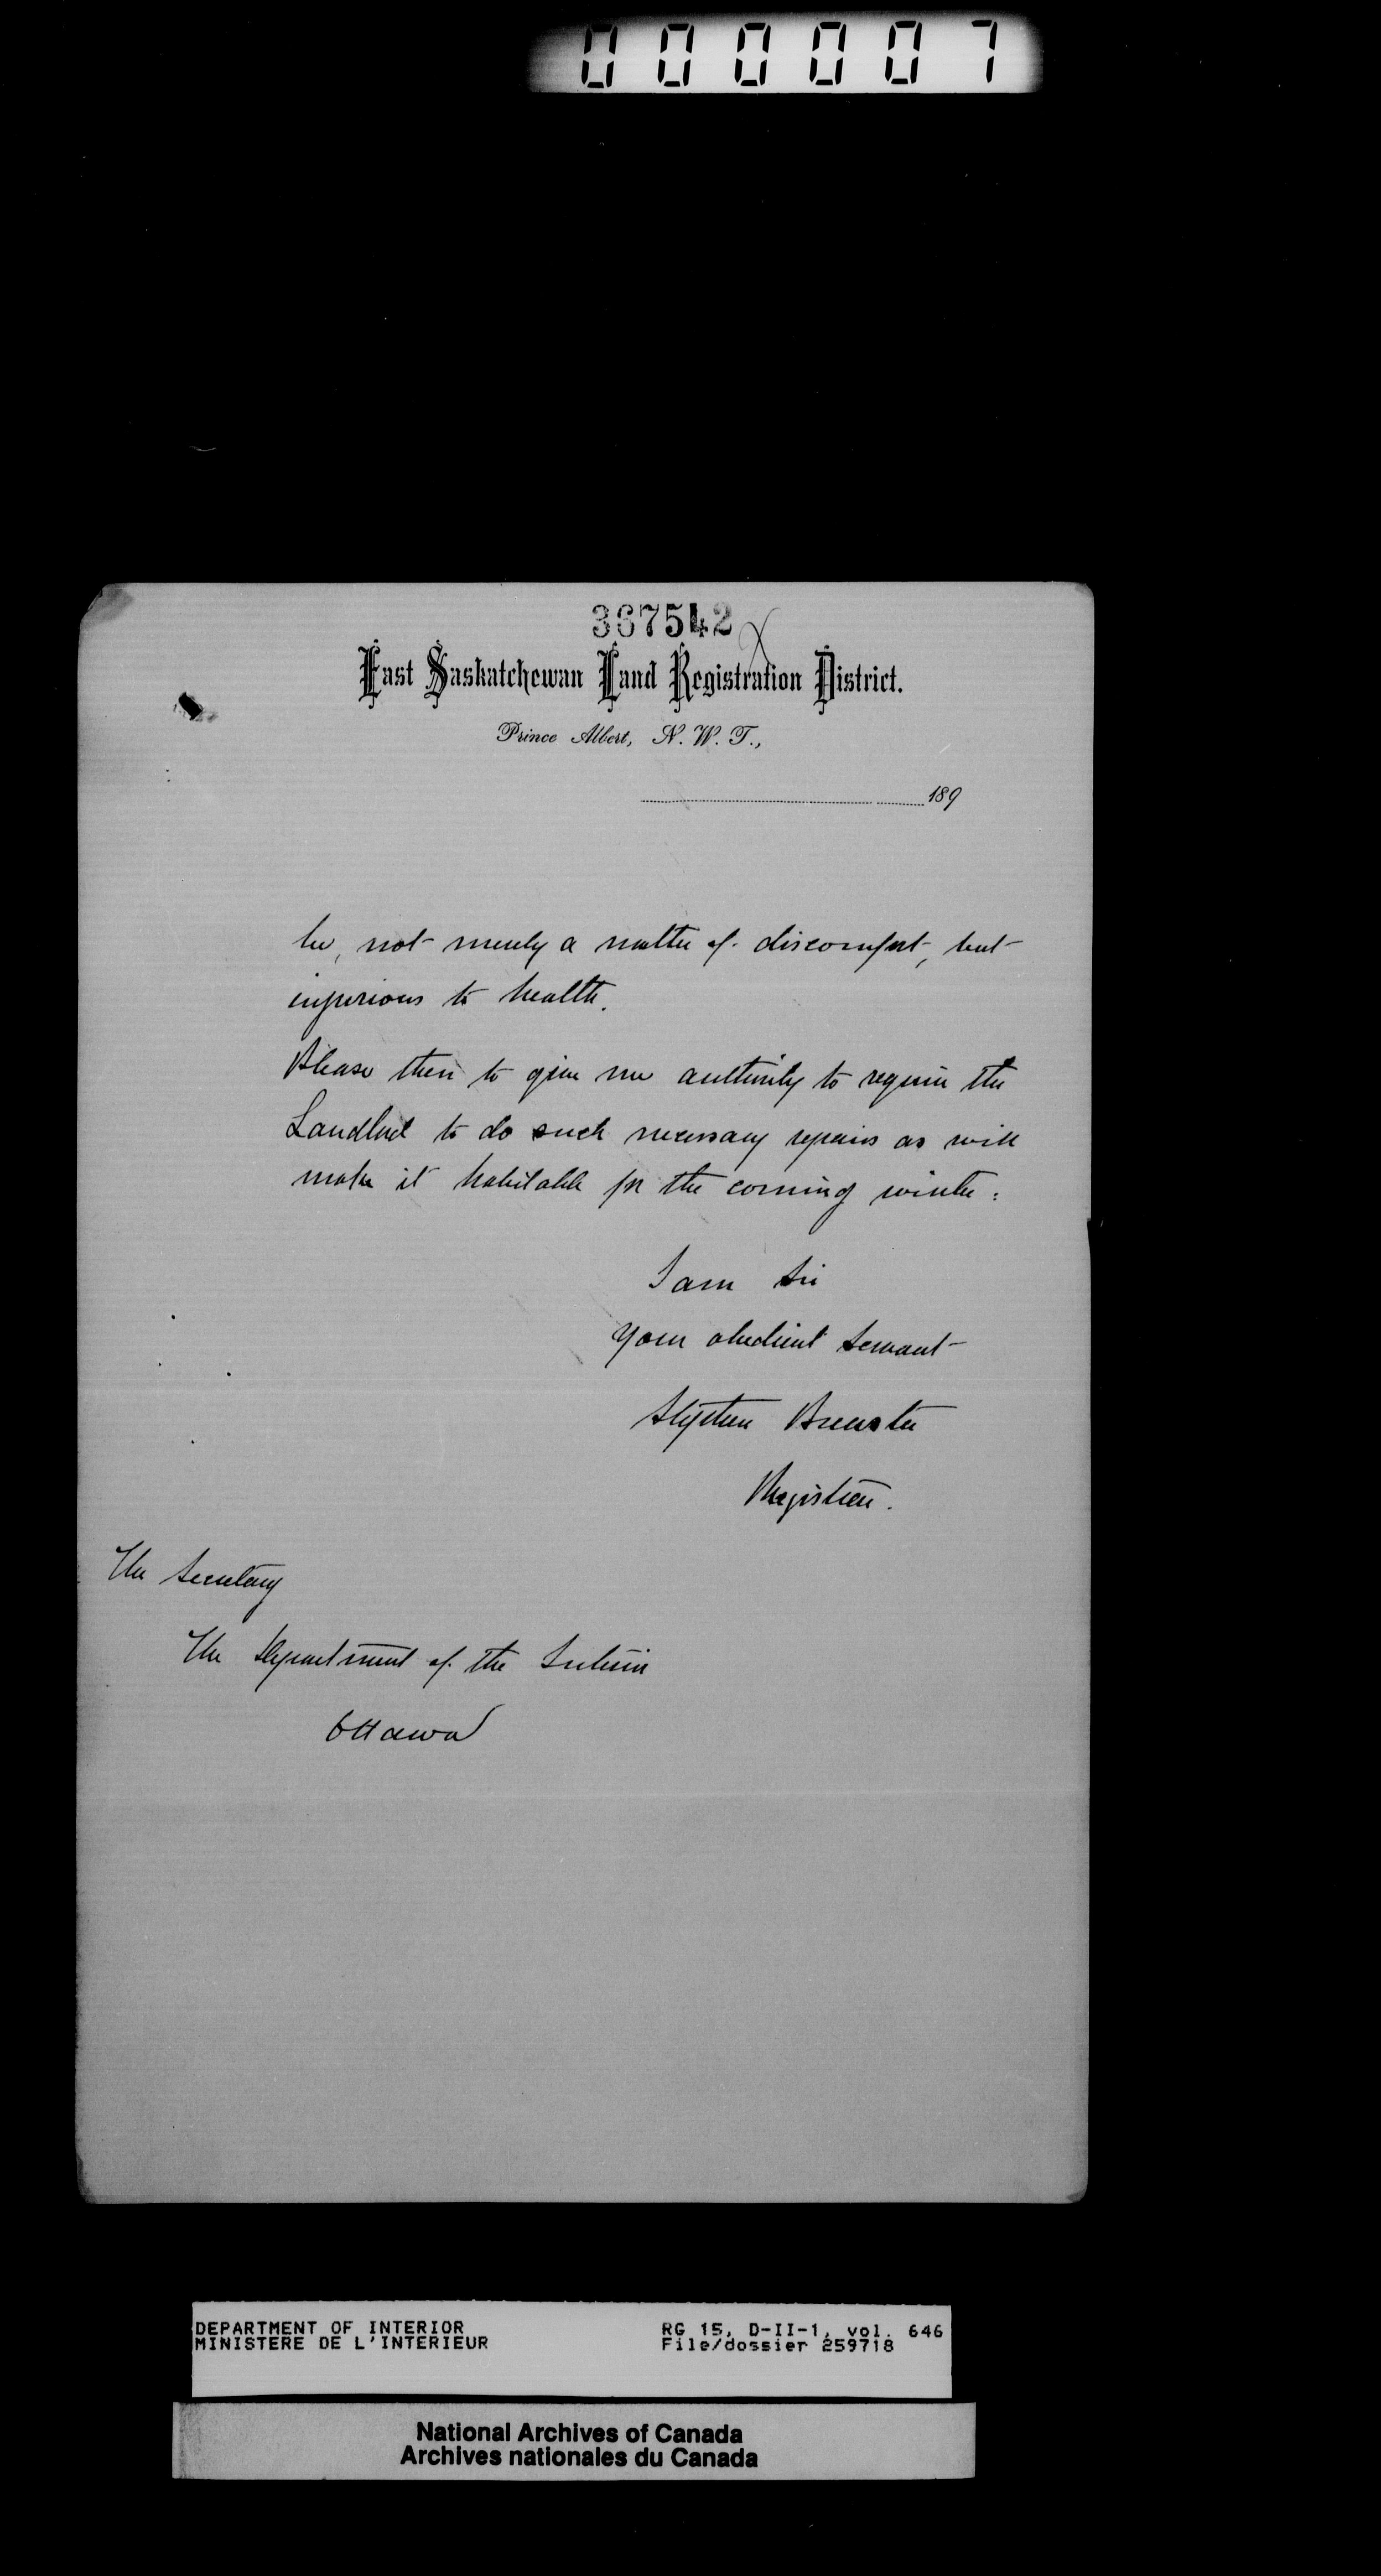 000007
367542
East Saskatchewan Land Registration District.
Prince Albert, N. W. T.,
189
be, not merely a matter of discomfort, but
injurious to health.
Please then to give me authority to require the
Landlord to do such necessary repairs as will
make it habitable for the coming winter:
I am Sir
Your obedient Servant
Stephen Brewster
Registrar.
The Secretary
The Department of the Interior
Ottawa
DEPARTMENT OF INTERIOR
MINISTERE DE L'INTERIEUR
RG 15, D-II-1, vol. 646
File/dossier 259718
National Archives of Canada
Archives nationales du Canada